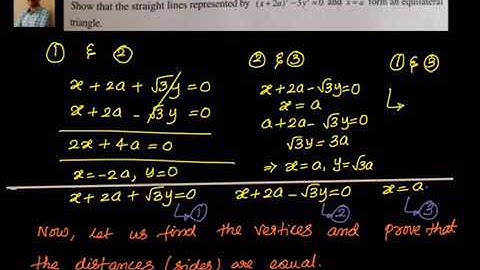 Show that the straight lines represented by (x + 2a)² − 3y² = 0 and x = a form an equilateral
triangle.
① & ②
x + 2a + √3y = 0
x + 2a − √3y = 0
2x + 4a = 0
x = −2a, y = 0
② & ③
x + 2a − √3y = 0
x = a
a + 2a − √3y = 0
√3y = 3a
⇒ x = a, y = √3a
① & ③
x + 2a + √3y = 0 ①
x + 2a − √3y = 0 ②
x = a. ③
Now, let us find the vertices and prove that
the distances (sides) are equal.